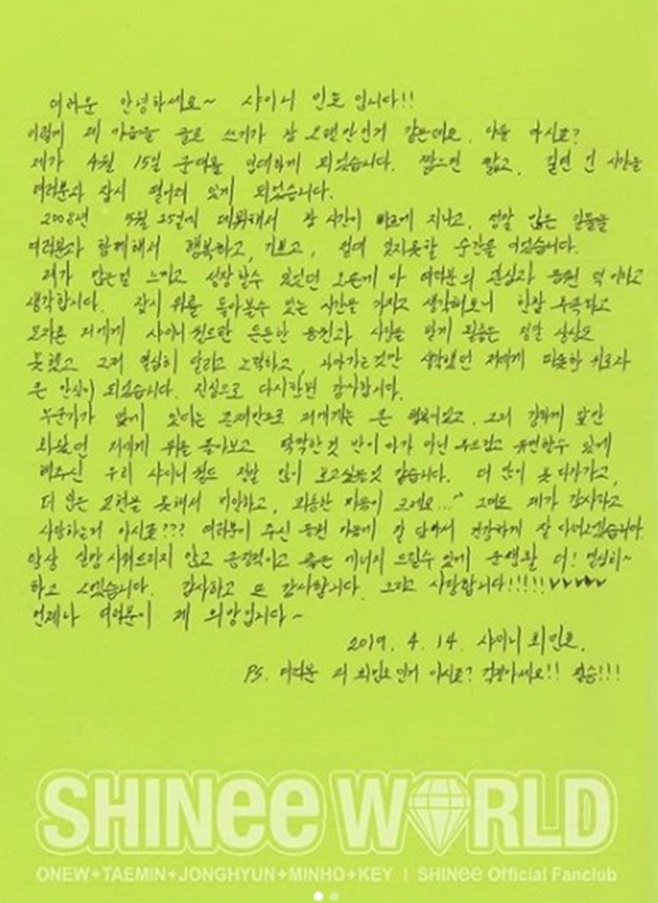 여러분 안녕하세요~ 샤이니 민호 입니다!!
이렇게 제 마음을 글로 쓰기가 참 오랜만인거 같은데요. 다들 아시죠?
제가 4월 15일 군대를 입대하게 되었습니다. 짧으면 짧고, 길면 긴 시간을
여러분과 잠시 떨어져 있게 되었습니다.
2008년 5월 25일에 데뷔해서 참 시간이 빠르게 지나고, 정말 많은 일들을
여러분과 함께해서 행복하고, 기쁘고, 절대 잊지못할 순간을 얻었습니다.
제가 많은걸 느끼고 성장할수 있었던 모든게 다 여러분의 관심과 응원 덕이라고
생각합니다. 잠시 뒤를 돌아볼수 있는 시간을 가지고 생각해보니 한참 부족하고
모자른 저에게 샤이니 월드란 든든한 응원과 사랑을 받게 될줄은 정말 상상도
못했고 그저 열심히 달리고 노력하고, 나아가는것만 생각했던 저에게 따뜻한 치료자
큰 안식이 되었습니다. 진심으로 다시한번 감사합니다.
누군가가 옆에 있다는 존재만으로 저에게는 큰 행복이었고. 그저 강하게 앞만
봐왔던 저에게 뒤를 돌아보고 딱딱한것 만이 다가 아닌 부드럽고 유연할수 있게
해주신 우리 샤이니 월드 정말 많이 보고싶을것 같습니다. 더 많이 못 다가가고,
더 많은 표현을 못해서 미안하고, 죄송한 마음이 크네요...^^ 그래도 제가 감사하고
사랑하는거 아시죠??? 여러분이 주신 응원 마음에 잘 담아서 건강하게 잘 다녀오겠습니다.
항상 실망 시켜드리지 않고 긍정적이고 좋은 에너지 드릴수 있게 군생활 더! 열심히~
하고 오겠습니다. 감사하고 또 감사합니다. 그리고 사랑합니다!!!!!
언제나 여러분이 제 희망입니다~
2019. 4. 14. 샤이니 최민호.
PS. 여러분 저 최민호인거 아시죠? 걱정마세요!! 필승!!!
SHINee WORLD
ONEW+TAEMIN+JONGHYUN+MINHO+KEY | SHINee Official Fanclub